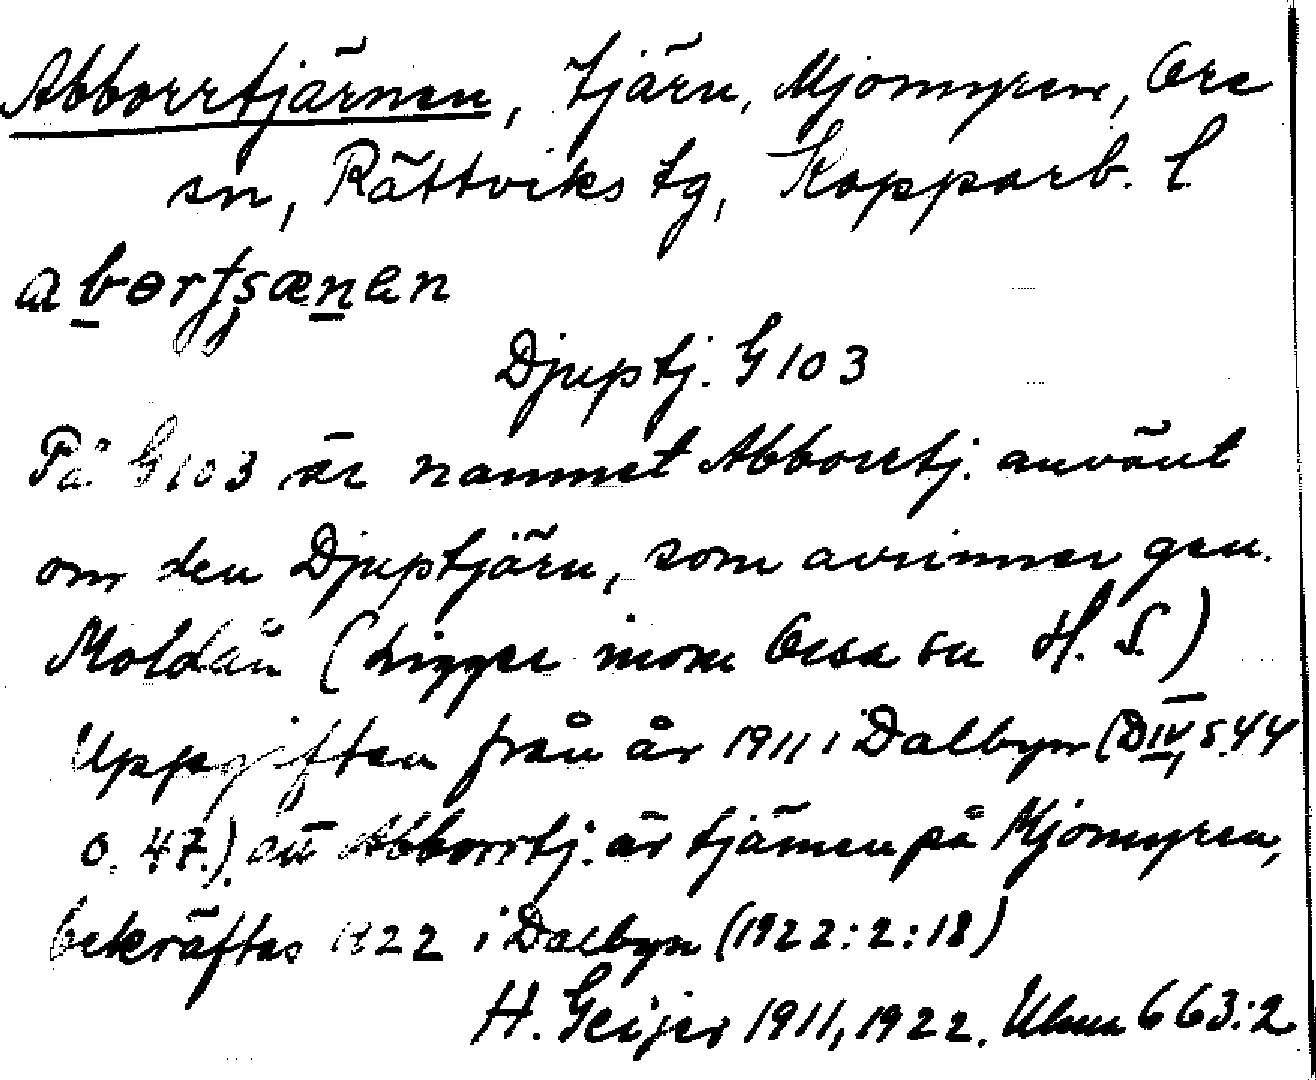 Abborrtjärnen, tjärn, Mjomyren, Ore
sn, Rättviks tg, Kopparb. l
abɵrtʂænan
Djuptj. G 103
På G 103 är namnet Abborrtj. använt
om den Djuptjärn, som avrinner gen.
Moldån (Ligger inom Orsa sn H. S.)
Uppgiften från år 1911 i Dalbyn (D IV, s. 44
o. 47.) att Abborrtj. är tjärnen på Mjomyren,
bekräftas 1922 i Dalbyn (1922:2:18)
H. Geijer 1911, 1922. Ulma 663:2